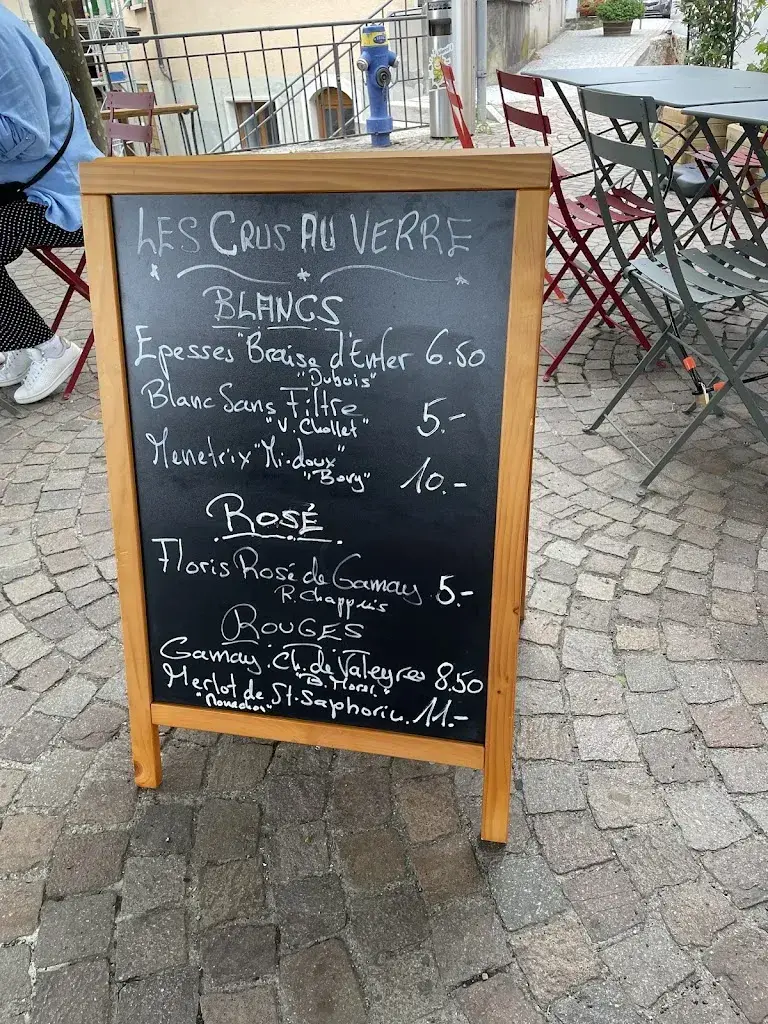 LES CRUS AU VERRE
BLANCS
Epesses "Braise d'Enfer 6.50
"Dubois"
Blanc Sans Filtre 5.-
"V. Chollet"
Menetrix "Mi-doux" 10.-
"Bory"
ROSÉ
Floris Rosé de Gamay 5.-
R. Chappuis
ROUGES
Gamay Ch. de Valeyres 8.50
Merlot de St-Saphorin 11.-